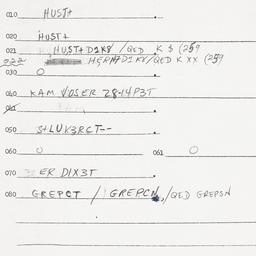 010 HUST+
020 HUST+
021 HUST+D1K8/QED K $ (259
022 HERN+D1K8/QED K XX (259
030 O
040 KAM VOSER 28-14P3T
041
050 S+LUV3RCT--
060 O 061 O
070 ER D1X3T
080 GREPCT / GREPCN,/QED GREPSN